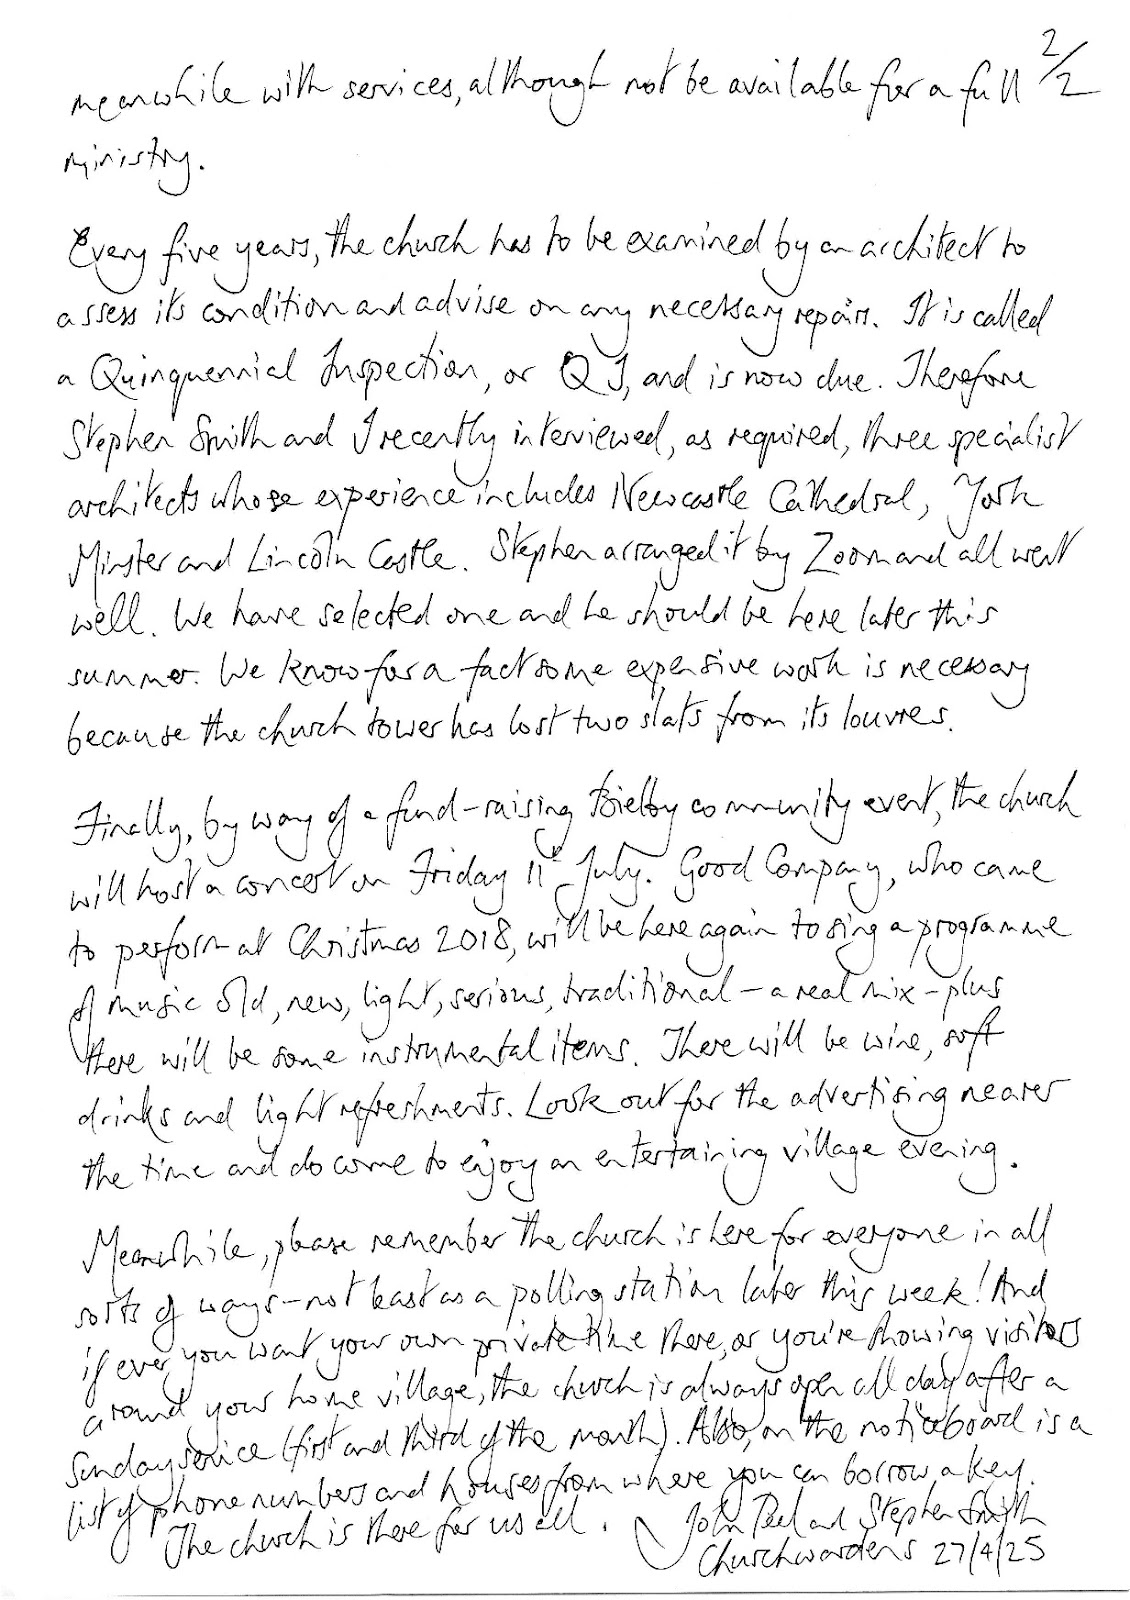 2/2
meanwhile with services, although not be available for a full
ministry.
Every five years, the church has to be examined by an architect to
assess its condition and advise on any necessary repairs. It is called
a Quinquennial Inspection, or QI, and is now due. Therefore
Stephen Smith and I recently interviewed, as required, three specialist
architects whose experience includes Newcastle Cathedral, York
Minster and Lincoln Castle. Stephen arranged it by Zoom and all went
well. We have selected one and he should be here later this
summer. We know for a fact some expensive work is necessary
because the church tower has lost two slats from its louvres.
Finally, by way of a fund-raising Bielby community event, the church
will host a concert on Friday 11th July. Good Company, who came
to perform at Christmas 2018, will be here again to sing a programme
of music old, new, light, serious, traditional - a real mix - plus
there will be some instrumental items. There will be wine, soft
drinks and light refreshments. Look out for the advertising nearer
the time and do come to enjoy an entertaining village evening.
Meanwhile, please remember the church is here for everyone in all
sorts of ways - not least as a polling station later this week! And
if ever you want your own private time there, or you're showing visitors
around your home village, the church is always open all day after a
Sunday service (first and third of the month). Also, on the noticeboard is a
list of phone numbers and houses from where you can borrow a key.
The church is there for us all.
John Peel and Stephen Smith
Churchwardens 27/4/25